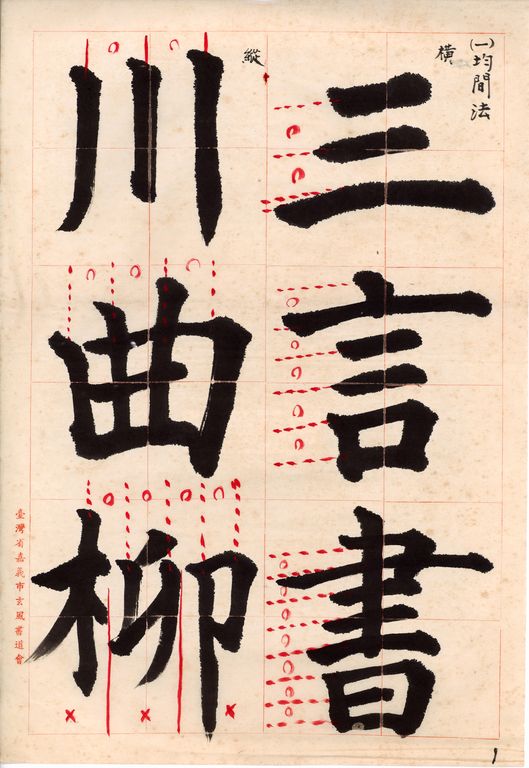 (一)均間法
橫
三言書
縱
川曲柳
臺灣省嘉義市玄風書道會
1